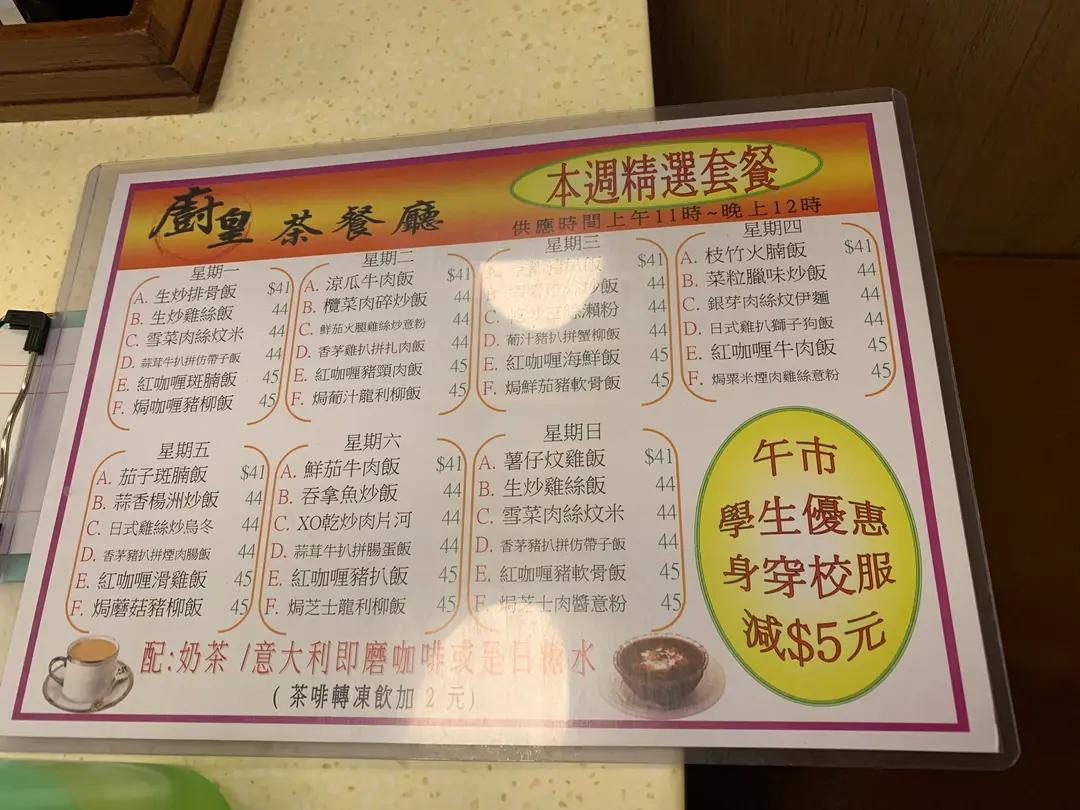 廚皇 茶餐廳
本週精選套餐
供應時間上午11時~晚上12時
星期一
A. 生炒排骨飯 $41
B. 生炒雞絲飯 44
C. 雪菜肉絲炆米 44
D. 蒜茸牛扒拼仿帶子飯 44
E. 紅咖喱斑腩飯 45
F. 焗咖喱豬柳飯 45
星期二
A. 涼瓜牛肉飯 $41
B. 欖菜肉碎炒飯 44
C. 鮮茄火腿雞絲炒意粉 44
D. 香茅雞扒拼扎肉飯 44
E. 紅咖喱豬頸肉飯 45
F. 焗葡汁龍利柳飯 45
星期三
$41
炒飯 44
C. 瀨粉 44
D. 葡汁豬扒拼蟹柳飯 44
E. 紅咖喱海鮮飯 45
F. 焗鮮茄豬軟骨飯 45
星期四
A. 枝竹火腩飯 $41
B. 菜粒臘味炒飯 44
C. 銀芽肉絲炆伊麵 44
D. 日式雞扒獅子狗飯 44
E. 紅咖喱牛肉飯 45
F. 焗粟米煙肉雞絲意粉 45
星期五
A. 茄子斑腩飯 $41
B. 蒜香楊洲炒飯 44
C. 日式雞絲炒烏冬 44
D. 香茅豬扒拼煙肉腸飯 44
E. 紅咖喱滑雞飯 45
F. 焗蘑菇豬柳飯 45
星期六
A. 鮮茄牛肉飯 $41
B. 吞拿魚炒飯 44
C. XO乾炒肉片河 44
D. 蒜茸牛扒拼腸蛋飯 44
E. 紅咖喱豬扒飯 45
F. 焗芝士龍利柳飯 45
星期日
A. 薯仔炆雞飯 $41
B. 生炒雞絲飯 44
C. 雪菜肉絲炆米 44
D. 香茅豬扒拼仿帶子飯 44
E. 紅咖喱豬軟骨飯 45
F. 焗芝士肉醬意粉 45
午市
學生優惠
身穿校服
減$5元
配:奶茶 /意大利即磨咖啡或是日糖水
( 茶啡轉凍飲加 2 元)